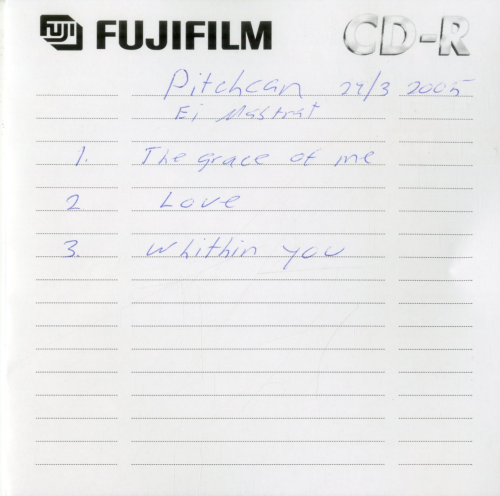 FUJI FUJIFILM CD-R
Pitchcan 27/3 2005
Ei Mastrat
1. The grace of me
2 Love
3. Whithin you